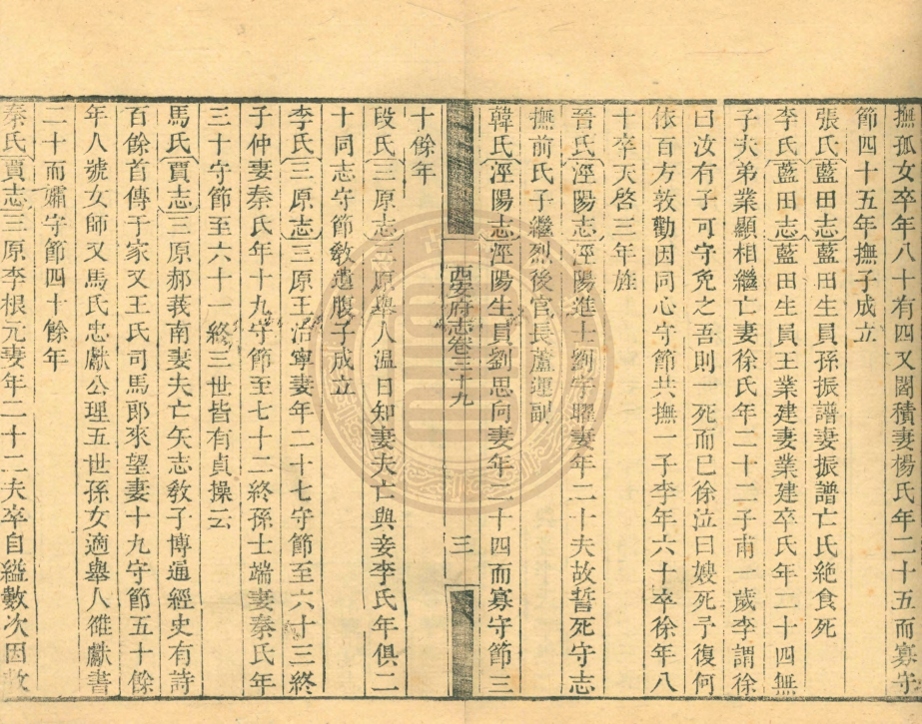 撫孤女卒年八十有四又閻積妻楊氏年二十五而寡守
節四十五年撫子成立
張氏藍田志藍田生員孫振譜妻振譜亡氏絕食死
李氏藍田志藍田生員王業建妻業建卒氏年二十四無
子夫弟業顯相繼亡妻徐氏年二十二子甫一歲李謂徐
曰汝有子可守免之吾則一死而已徐泣曰嫂死予復何
依百方敦勸因同心守節共撫一子李年六十卒徐年八
十卒天啓三年旌
晉氏涇陽志涇陽進士劉宇曜妻年二十夫故誓死守志
撫前氏子繼烈後官長蘆運副
韓氏涇陽志涇陽生員劉思向妻年二十四而寡守節三
西安府志卷三十九
三
十餘年
段氏三原志三原舉人温日知妻夫亡與妾李氏年俱二
十同志守節敎遺腹子成立
李氏三原志三原王治寧妻年二十七守節至六十三終
子仲妻秦氏年十九守節至七十二終孫士端妻秦氏年
三十守節至六十一終三世皆有貞操云
馬氏賈志三原郝莪南妻夫亡矢志敎子博通經史有詩
百餘首傳于家又王氏司馬郎來望妻十九守節五十餘
年人號女師又馬氏忠獻公理五世孫女適舉人雒獻書
二十而孀守節四十餘年
秦氏賈志三原李根元妻年二十二夫卒自縊數次因救